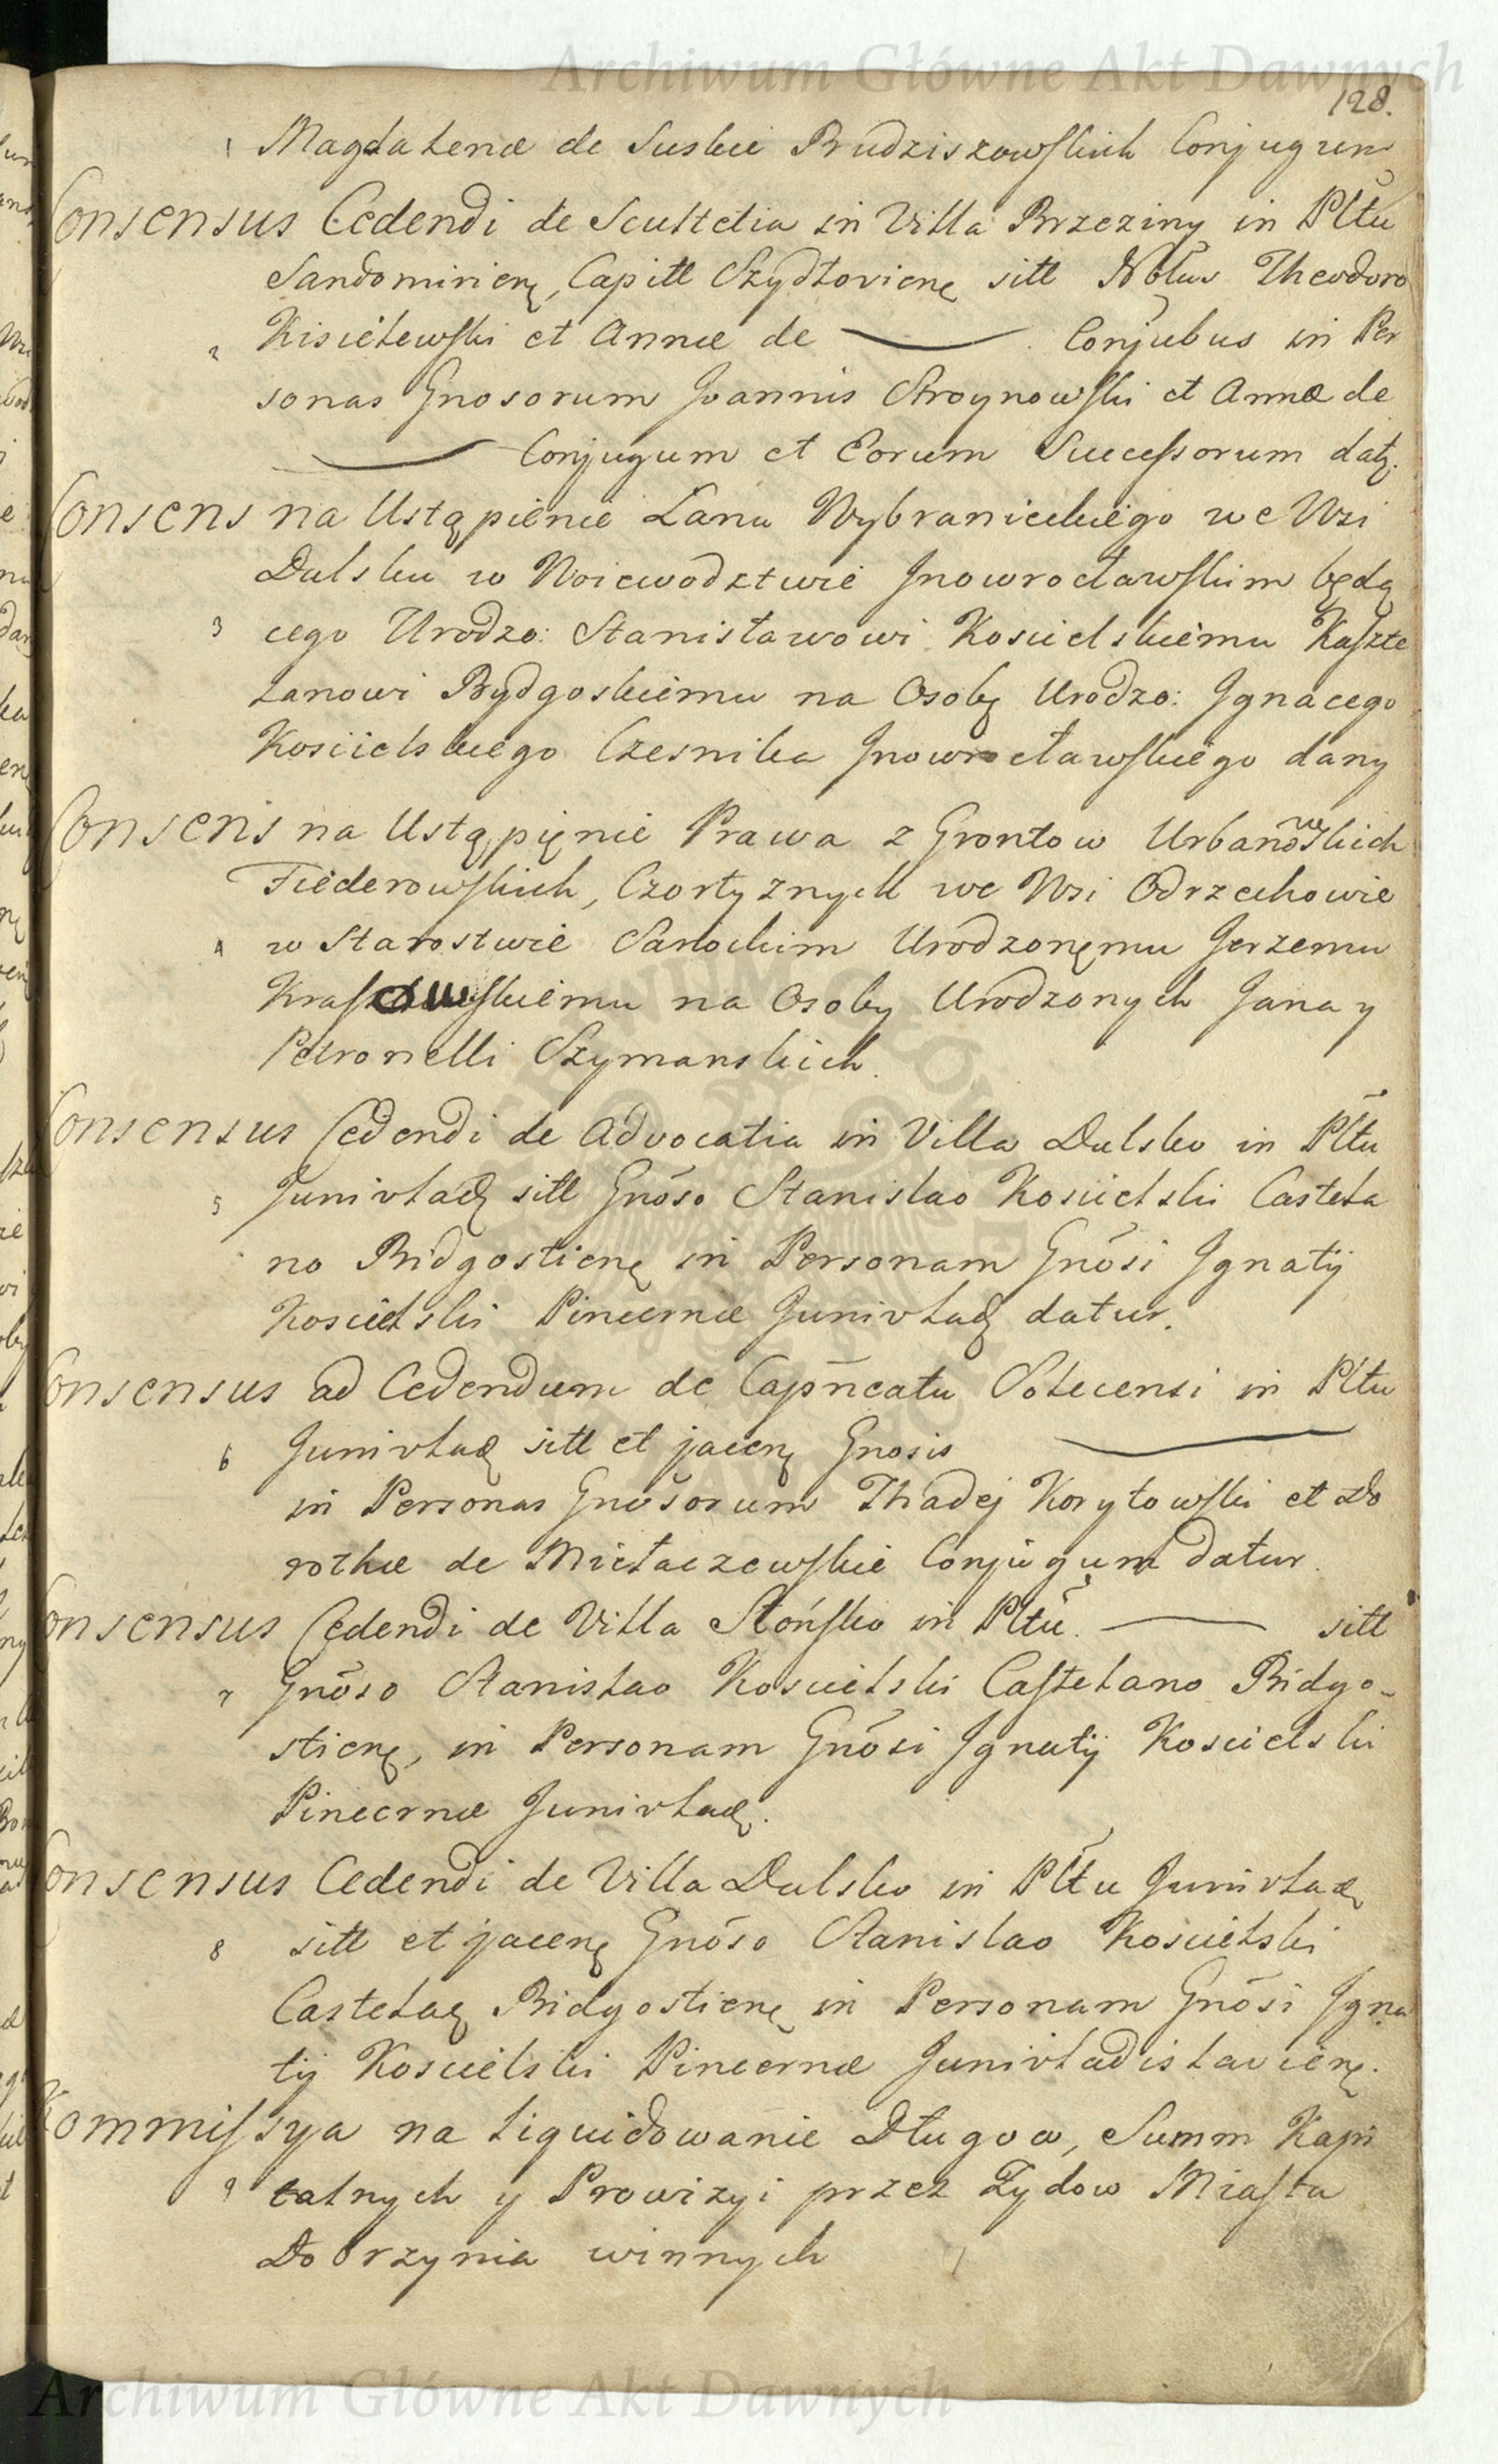 Archiwum Główne Akt Dawnych
128.
1 Magdalenæ de Suskie Brudziszowskich Conjugum
Consensus Cedendi de Scultetia in Villa Brzeziny in Pltu
Sandomirienę, Capitt Szydłovienę sitt Nobłus Theodoro
2 Kisielewski et Annæ de ——— Conjubus in Per
sonas Gnosorum Joannis Stroynowski et Annæ de
——— Conjugum et Eorum Successorum datę.
Consens na Ustąpienie Łanu Wybranieckiego we Wsi
Dulsku w Woiewodztwie Jnowrocławskim będą
3 cego Urodzo: Stanisławowi Koscielskiemu Kaszte
lanowi Bydgoskiemu na Osobę Urodzo: Jgnacego
Koscielskiego Czesnika Jnowrocławskiego dany
Consens na Ustąpięnie Prawa z Grontow Urbanowskich
Fiederowskich, Czortyznych we Wsi Odrzechowie
4 w Starostwie Sanockim Urodzonęmu Jerzemu
Kraszowskiemu na Osoby Urodzonych Jana y
Petronelli Szymanskich.
Consensus Cedendi de Advocatia in Villa Dulsko in Pltu
5 Junivladę sitt Gnōso Stanislao Koscielski Castela
no Bidgostienę in Personam Gnōsi Jgnatij
Koscielski Pincernæ Junivladę datur.
Consensus ad Cedendum de Capn̄eatu Solecensi in Pltu
6 Junivladę sitt et jacenę Gnosis ———
in Personas Gnōsorum Thadej Korytowski et Do
rothæ de Mielaczewskie Conjugum datur.
Consensus Cedendi de Villa Słońsko in Pltu. ——— sitt
7 Gnōso Stanislao Koscielski Castelano Bidgo-
stienę, in Personam Gnōsi Jgnatij Koscielski
Pincernæ Junivladę.
Consensus Cedendi de Villa Dulsko in Pltu Junivladę
8 sitt et jacenę Gnōso Stanislao Koscielski
Castelaę Bidgostienę in Personam Gnōsi Jgna
tij Koscielski Pincernæ Junivladislavienę.
Kommissya na liquidowanie Długow, Summ Kapi
9 talnych y Prowizyi przez Zydow Miasta
Dobrzynia winnych
Archiwum Główne Akt Dawnych